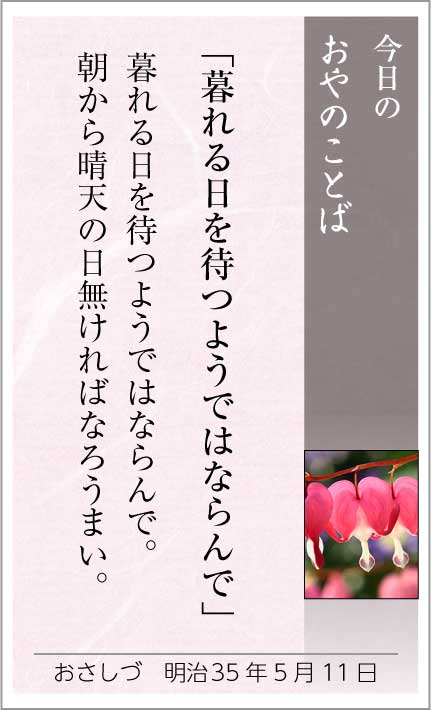 今日の
おやのことば
「暮れる日を待つようではならんで」
暮れる日を待つようではならんで。
朝から晴天の日無ければなろうまい。
おさしづ　明治35年5月11日